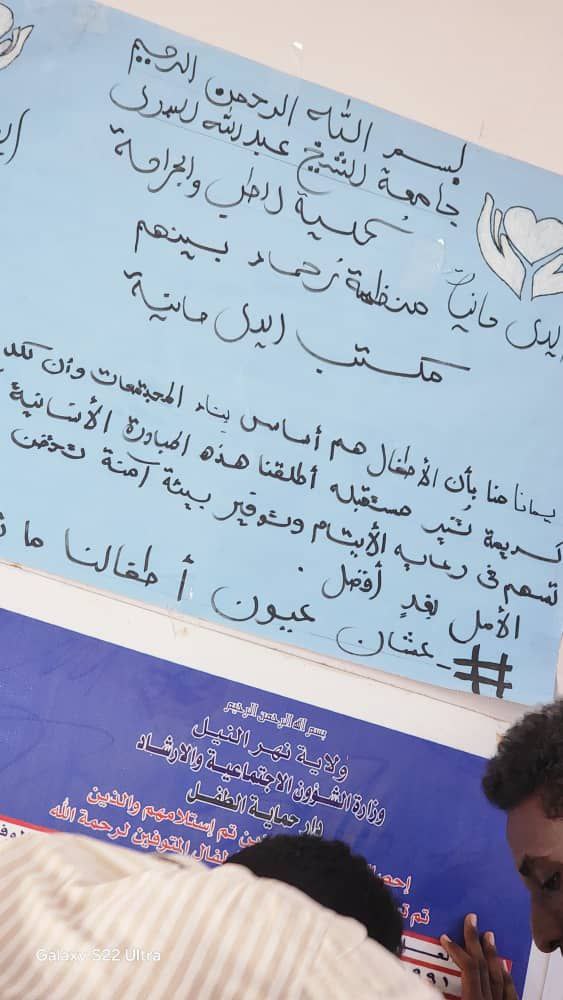 بسم الله الرحمن الرحيم
جامعة الشيخ عبدالله البدري
كلية الطب والجراحة
ايدي حانية منظمة رُحماء بينهم
مكتب ايدي حانية
يمانا منا بأن الأطفال هم أساس بناء المجتمعات وأن لكل
كريمة تُنير مستقبله أطلقنا هذه المبادرة الأنسانية
تسهم في رعاية الأيتام وتوفير بيئة آمنة تحتضن
الأمل بغدٍ أفضل .
#_عشان عيون أطفالنا ما
بسم الله الرحمن الرحيم
ولاية نهر النيل
وزارة الشؤون الاجتماعية والارشاد
دار حماية الطفل
ين تم إستلامهم والذين
فال المتوفين لرحمة الله
Galaxy S22 Ultra